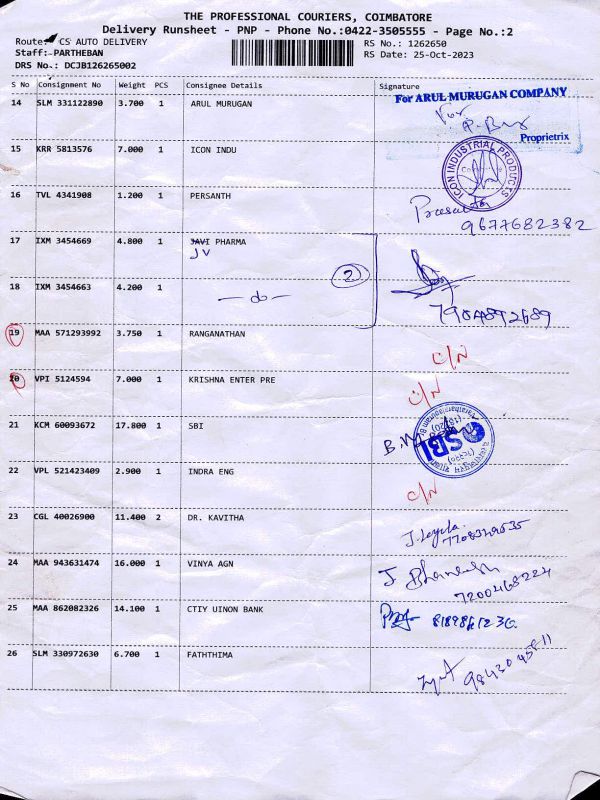 THE PROFESSIONAL COURIERS, COIMBATORE
Delivery Runsheet - PNP - Phone No.:0422-3505555 - Page No.:2
Route: CS AUTO DELIVERY
RS No.: 1262650
Staff:-PARTHEBAN
RS Date: 25-Oct-2023
DRS No.: DCJB126265002
S No Consignment No Weight PCS Consignee Details Signature
14 SLM 331122890 3.700 1 ARUL MURUGAN
For ARUL MURUGAN COMPANY
Proprietrix
15 KRR 5813576 7.000 1 ICON INDU
ICON INDUSTRIAL PRODUCTS
16 TVL 4341908 1.200 1 PERSANTH
9677682382
17 IXM 3454669 4.800 1 JAVI PHARMA
JV
2
18 IXM 3454663 4.200 1 -do-
19 MAA 571293992 3.750 1 RANGANATHAN
C/N
20 VPI 5124594 7.000 1 KRISHNA ENTER PRE
C/N
21 KCM 60093672 17.800 1 SBI
SBI
22 VPL 521423409 2.900 1 INDRA ENG
C/N
23 CGL 40026900 11.400 2 DR. KAVITHA
24 MAA 943631474 16.000 1 VINYA AGN
7200468224
25 MAA 862082326 14.100 1 CTIY UINON BANK
26 SLM 330972630 6.700 1 FATHTHIMA